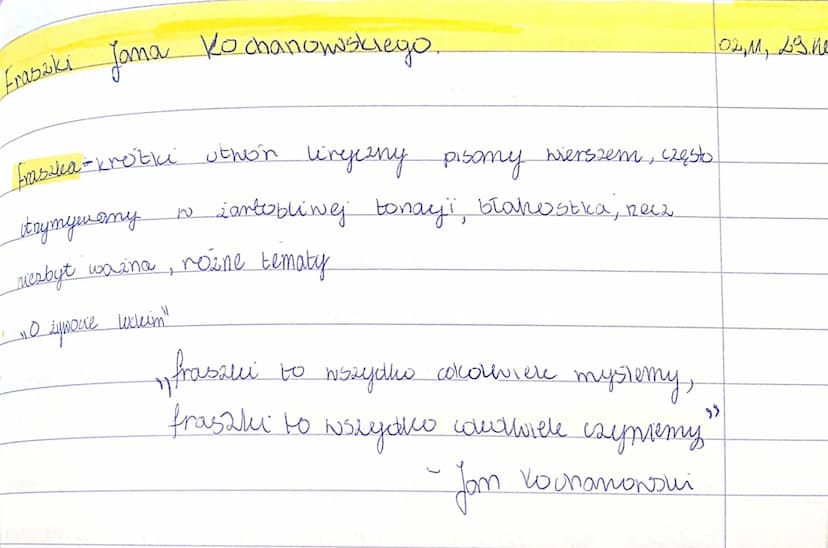 Fraszki Jana Kochanowskiego. 02.11,
fraszka - krótki utwór liryczny pisany wierszem, często
utrzymywany w żartobliwej tonacji, błahostka, rzecz
niezbyt ważna, różne tematy
„O żywocie ludzkim"
„fraszki to wszydko cokolwiek myślemy,
fraszki to wszydko cokolwiek czyniemy”
- Jan Kochanowski